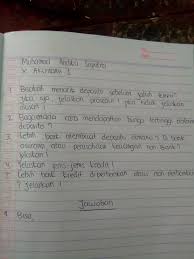 Muhamad Andika Saputra
X Akuntansi 1
1. Bisakah menarik deposito sebelum jatuh tempo?
jika iya, jelaskan prosesnya! jika tidak jelaskan
alasan!
2. Bagaimana cara mendapatkan bunga tertinggi
deposito?
3. Lebih baik membuat deposito dimana? Di bank
atau perusahaan keuangan non bank?
jelaskan!
4. Jelaskan jenis-jenis kredit!
5. Lebih baik kredit di perbankan atau non perbankan
? Jelaskan!
Jawaban
1. Bisa,